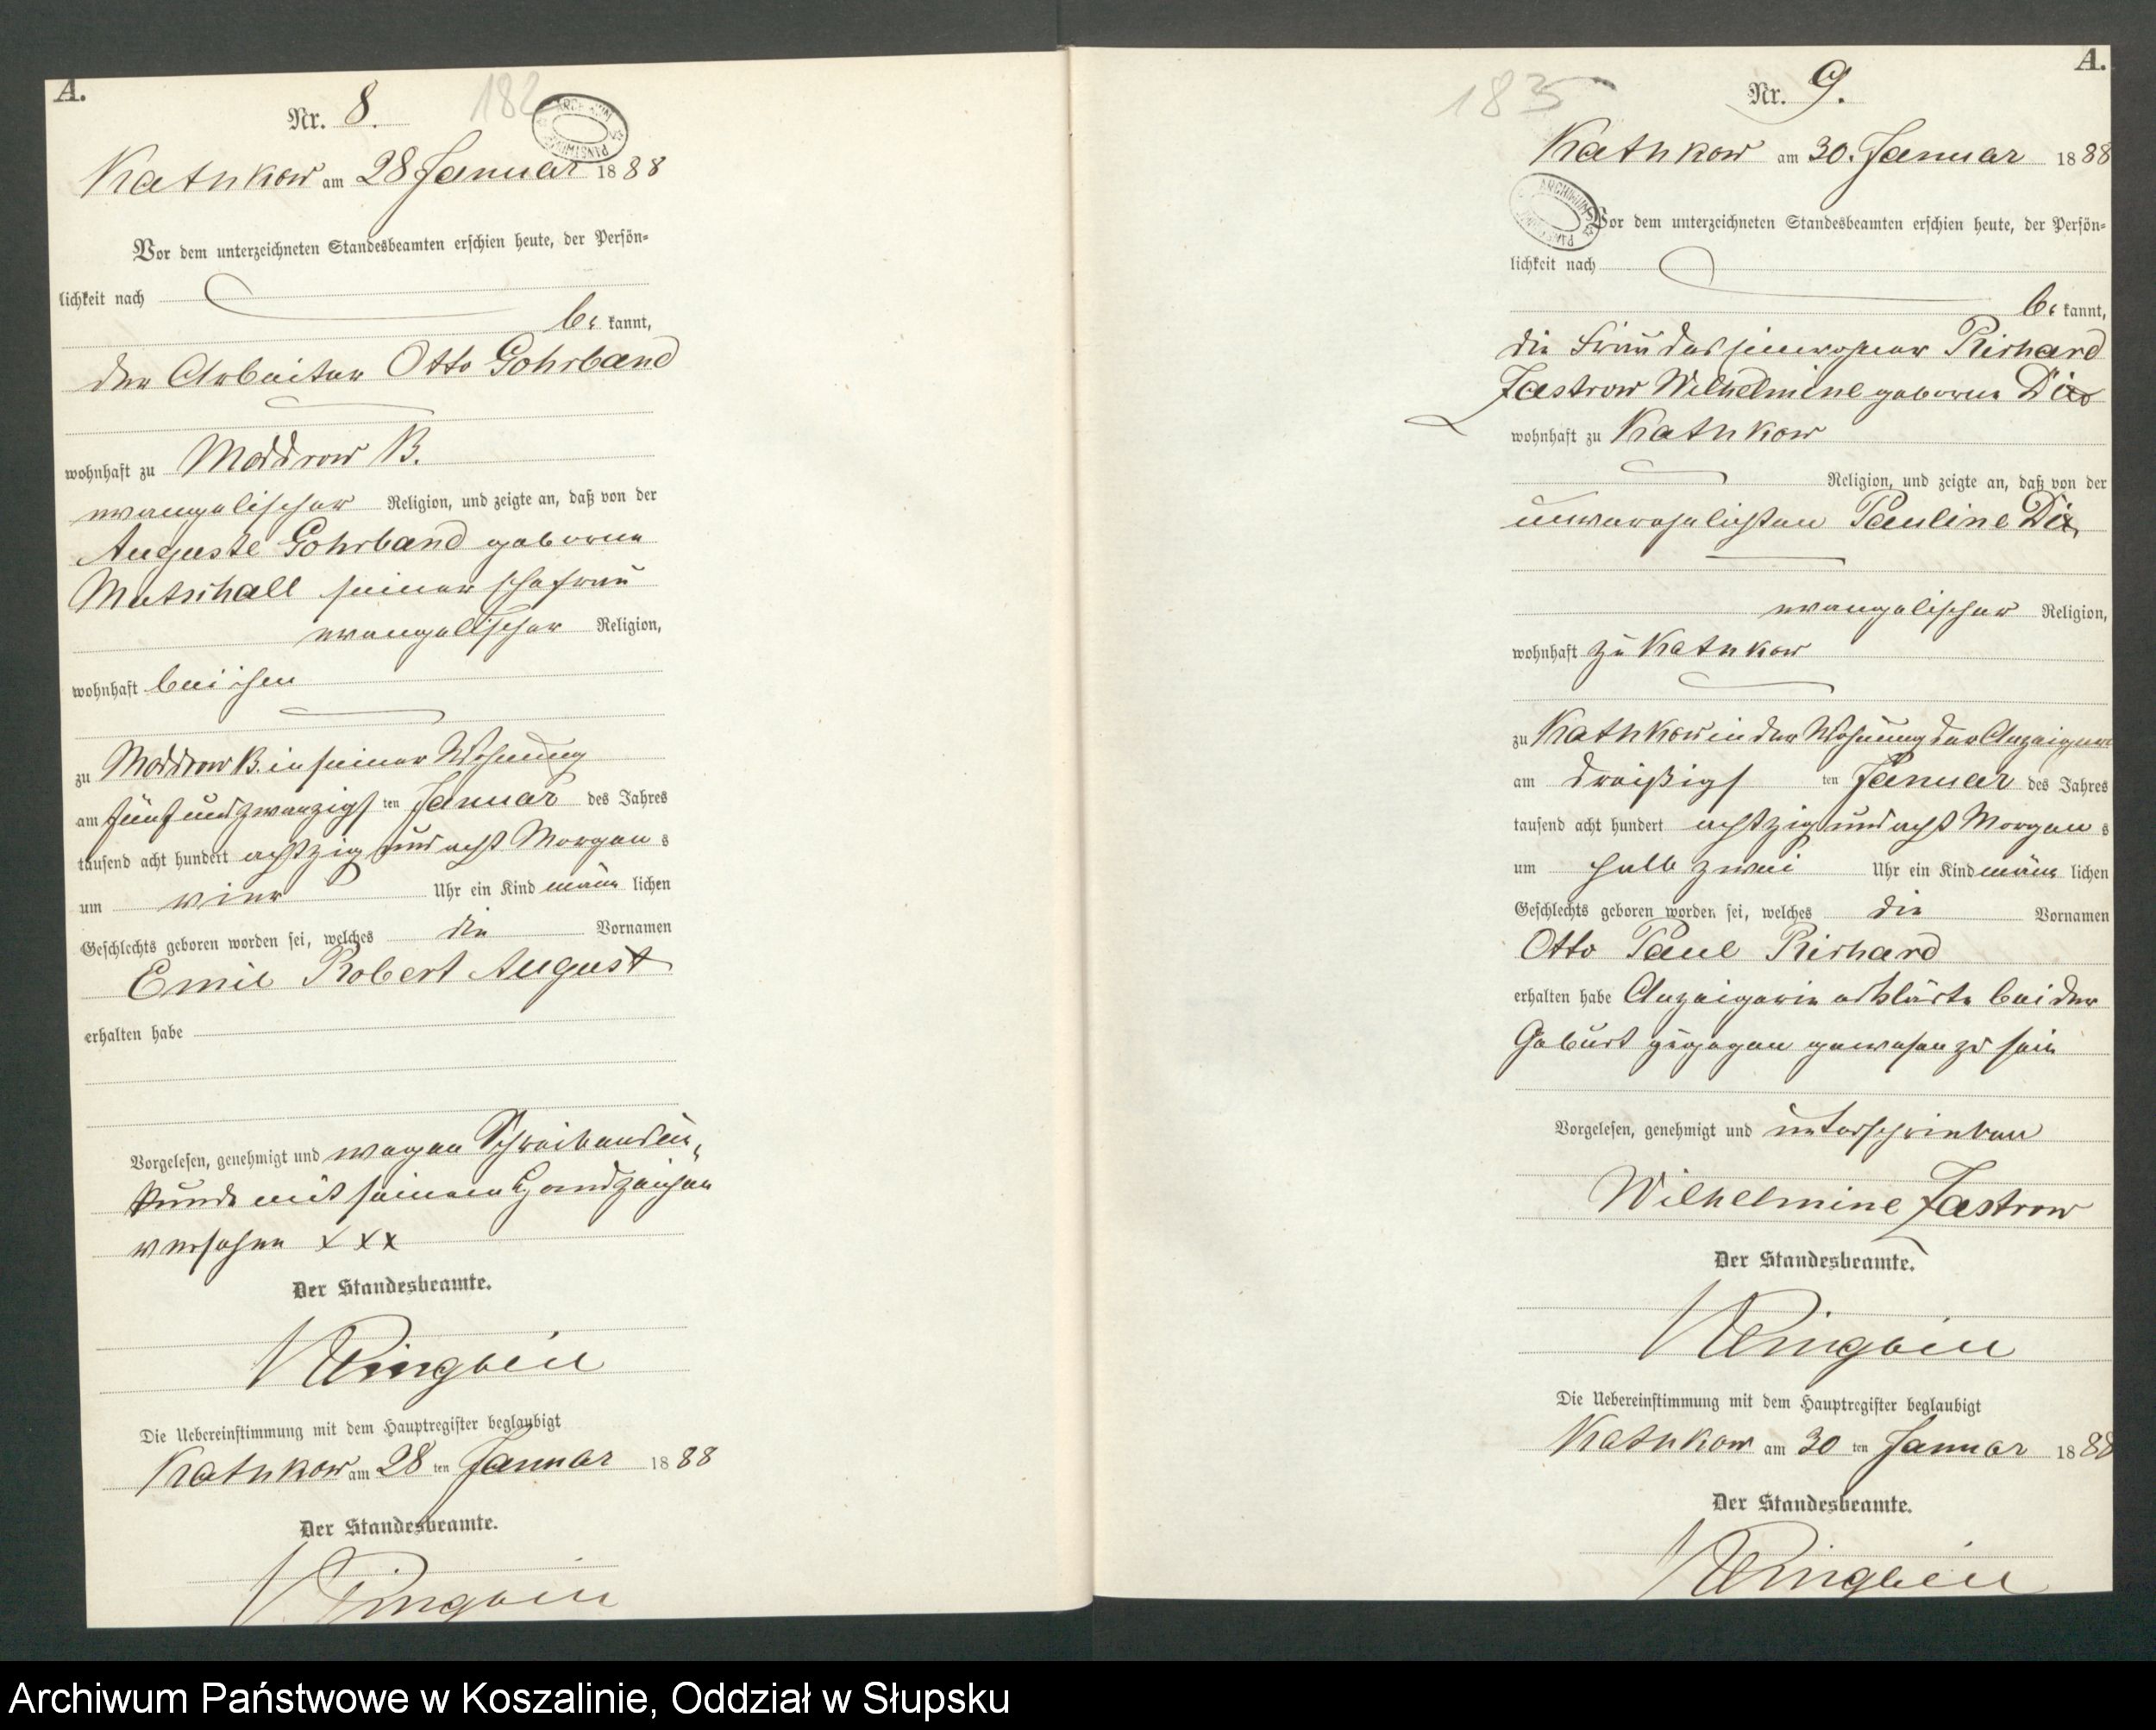 A.
Nr. 8.
182
Katkow am 28 Januar 1888
Vor dem unterzeichneten Standesbeamten erschien heute, der Persön-
lichkeit nach
be kannt,
der Arbeiter Otto Gohrband
wohnhaft zu Moddrow B.
evangelischer Religion, und zeigte an, daß von der
Auguste Gohrband geborene
Mutschall seiner Ehefrau
evangelischer Religion,
wohnhaft bei ihm
zu Moddrow B. in seiner Wohnung
am fünf und zwanzigs ten Januar des Jahres
tausend acht hundert achtzig und acht Morgen s
um vier Uhr ein Kind männ lichen
Geschlechts geboren worden sei, welches die Vornamen
Emil Robert August
erhalten habe
Vorgelesen, genehmigt und wegen Schreibensun-
kunde mit seinem Handzeichen
versehen xxx
Der Standesbeamte.
Die Uebereinstimmung mit dem Hauptregister beglaubigt
Katkow am 28 ten Januar 1888
Der Standesbeamte.
A.
Nr. 9.
1835
Katkow am 30. Januar 1888
Vor dem unterzeichneten Standesbeamten erschien heute, der Persön-
lichkeit nach
be kannt,
die Frau des Einwohner Richard
Zastrow Wilhelmine geborene Dix
wohnhaft zu Katkow
Religion, und zeigte an, daß von der
unverehelichten Pauline Dix
evangelischer Religion,
wohnhaft zu Katkow
zu Katkow in der Wohnung der Anzeigerin
am dreißigs ten Januar des Jahres
tausend acht hundert achtzig und acht Morgen s
um halb zwei Uhr ein Kind männ lichen
Geschlechts geboren worden sei, welches die Vornamen
Otto Paul Richard
erhalten habe Anzeigerin erklärte bei der
Geburt zugegen gewesen zu sein
Vorgelesen, genehmigt und unterschrieben
Wilhelmine Zastrow
Der Standesbeamte.
Die Uebereinstimmung mit dem Hauptregister beglaubigt
Katkow am 30 ten Januar 1888
Der Standesbeamte.
Archiwum Państwowe w Koszalinie, Oddział w Słupsku